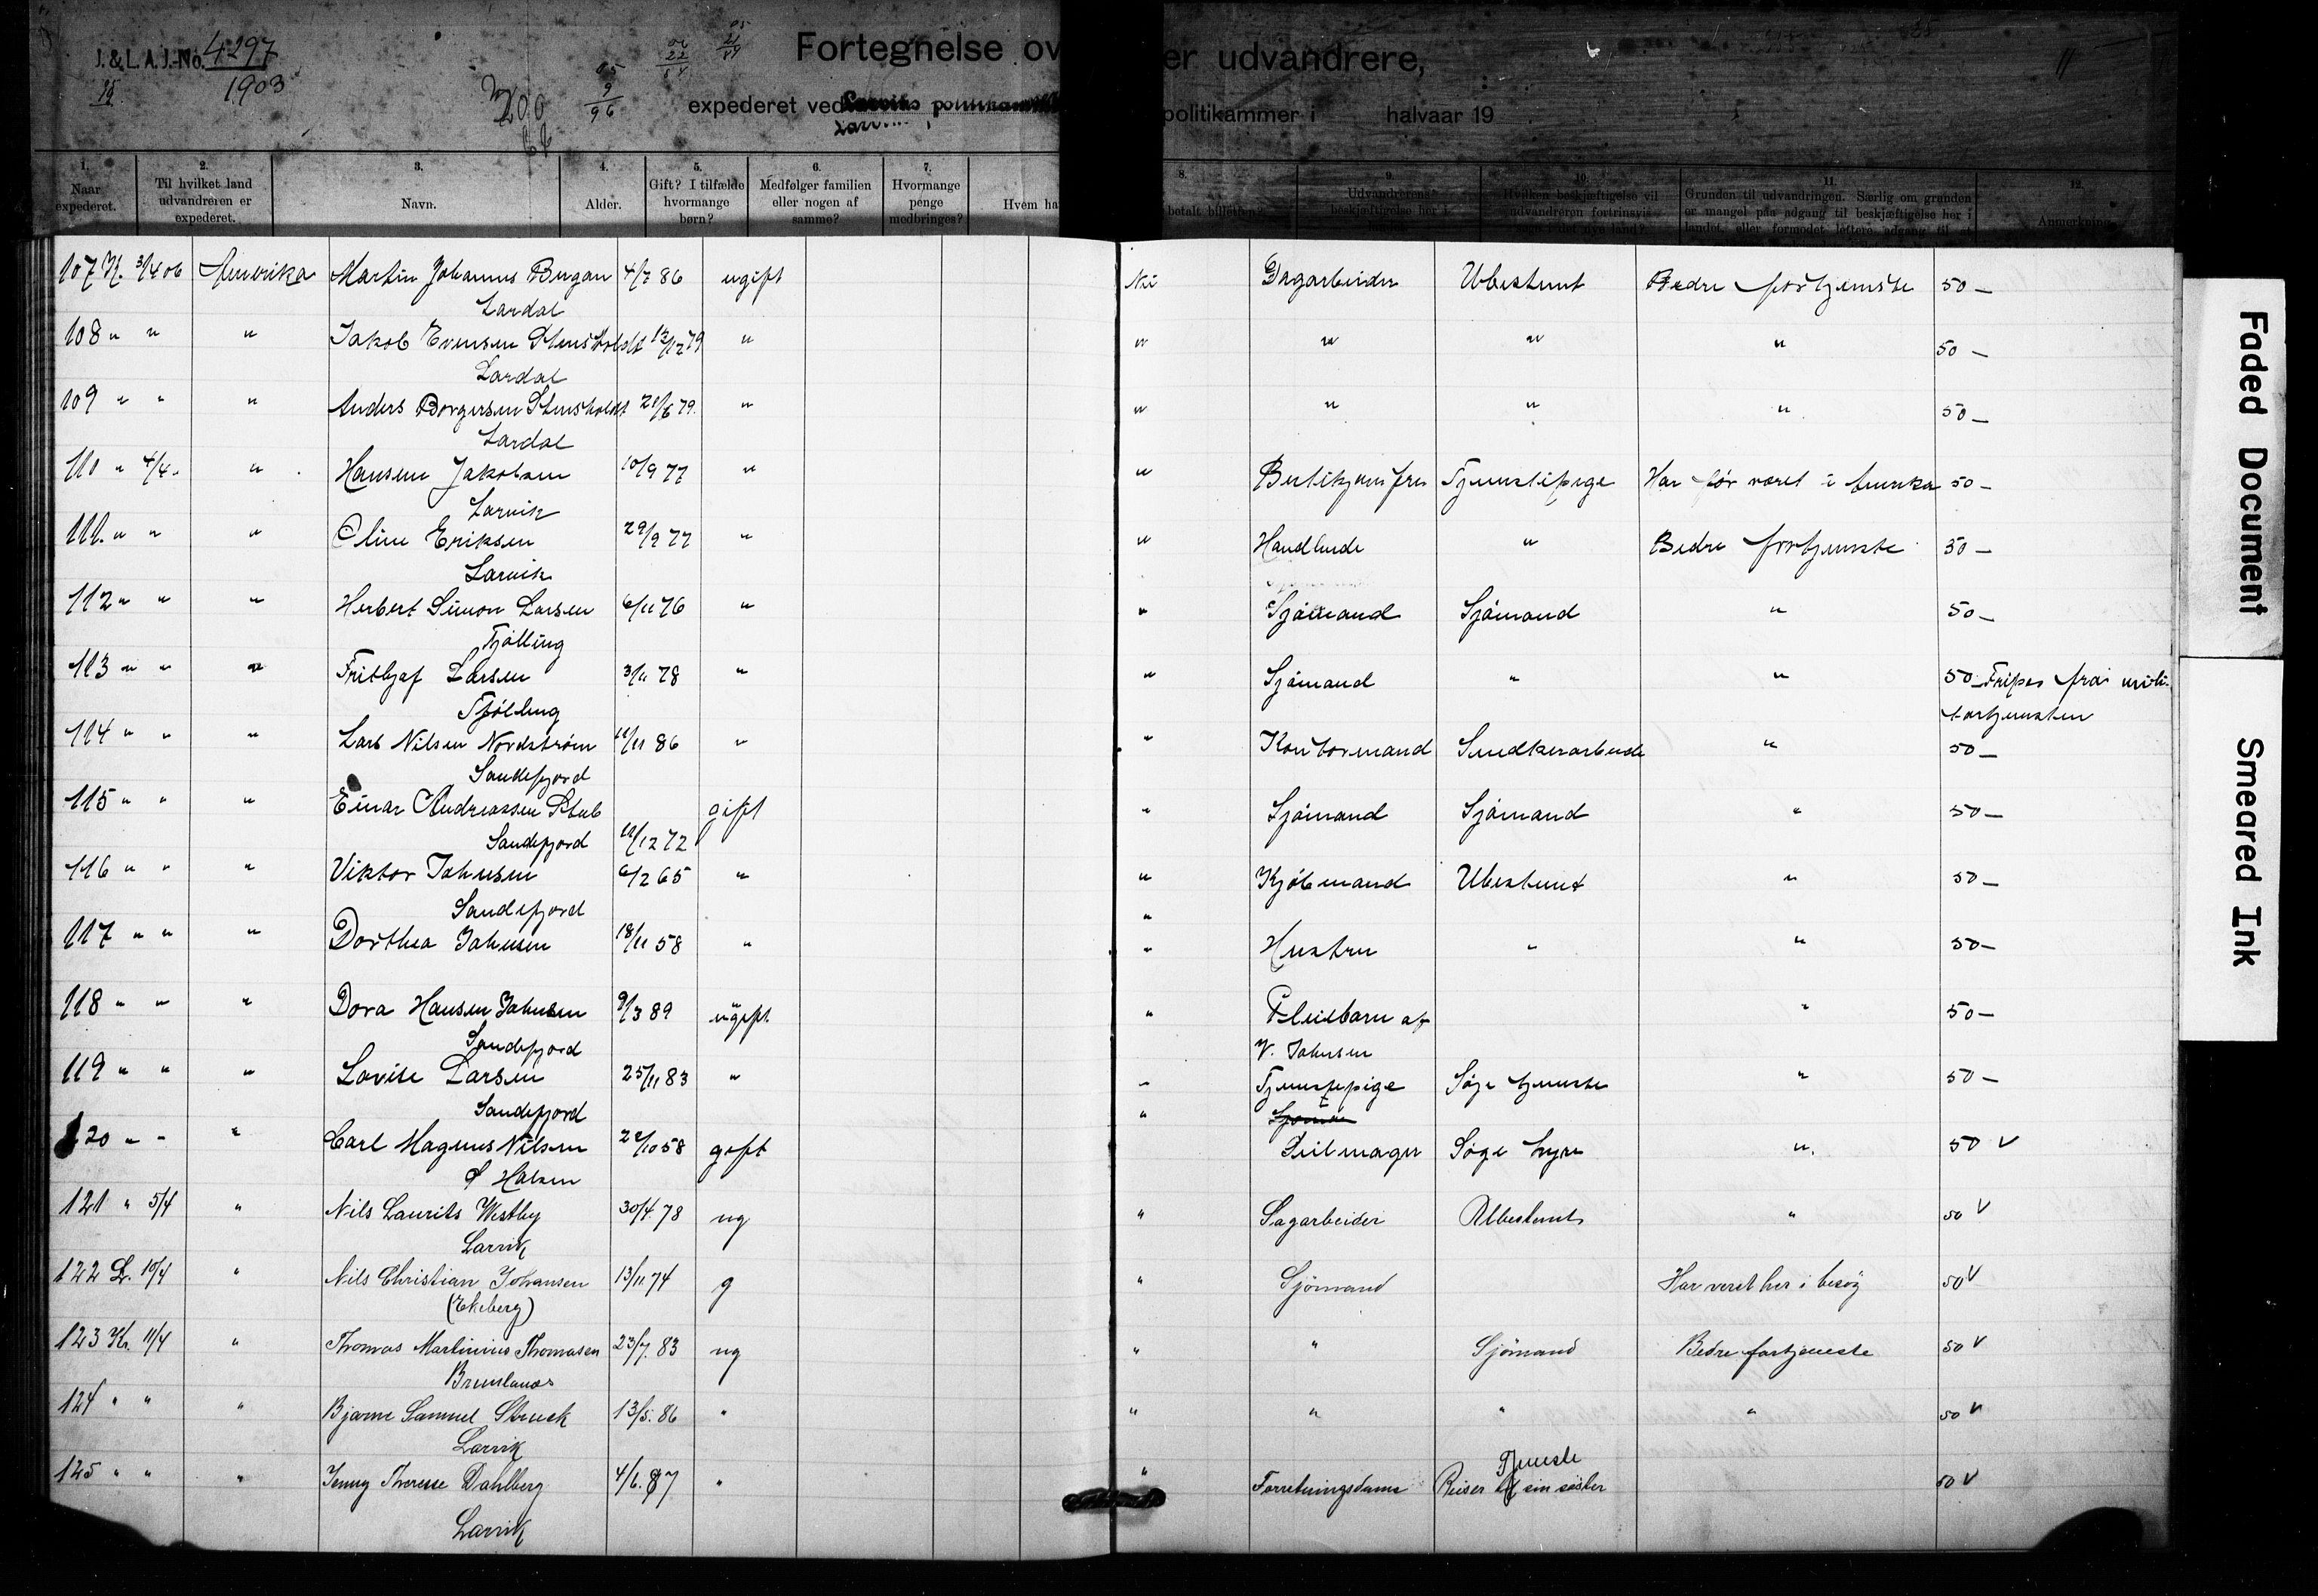 J. & L. A. J.-No. 4297
1903
200
Fortegnelse over udvandrere,
expederet ved Larviks politikammer i halvaar 19
Larvik
1. Naar expederet.
2. Til hvilket land udvandreren er expederet.
3. Navn.
4. Alder.
5. Gift? I tilfælde hvormange børn?
6. Medfølger familien eller nogen af samme?
7. Hvormange penge medbringes?
8. Hvem ha betalt billetten?
9. Udvandrerens beskjæftigelse her i
10. Hvilken beskjæftigelse vil udvandreren fortrinsvis søge i det nye land?
11. Grunden til udvandringen. Særlig om grunden er mangel paa adgang til beskjæftigelse her i landet eller formodet lettere adgang til
12. Anmerkning.
107 K. 3/4 06 Amerika Martin Johannes Bergan 4/7 86 ugift Nei Dagarbeider Ubestemt Bedre fortjenste 50 —
Lardal
108 " " " Jakob Evensen Stensholdt 12/12 79 " " " " " 50 —
Lardal
109 " " " Anders Borgersen Stensholdt 21/6 79 " " " " " 50 —
Lardal
110 " 4/4 " Hansine Jakobsen 10/9 77 " " Butikjomfru Tjenestepige Har før været i Amerika 50 —
Larvik
111 " " " Oline Eriksen 29/9 77 " " Handlende " Bedre fortjenste 50 —
Larvik
112 " " " Herbert Simon Larsen 6/11 76 " " Sjömand Sjömand " 50 —
Tjølling
113 " " " Frithjof Larsen 3/11 78 " " Sjömand " " 50 — Fripas fra mili-
Tjølling tærtjenesten
114 " " " Lars Nilsen Nordstrøm 11/11 86 " " Kontormand Snedkerarbeide " 50 —
Sandefjord
115 " " " Einar Andreassen Stub gift " Sjömand Sjömand " 50 —
Sandefjord 12/12 72
116 " " " Viktor Johnsen 6/2 65 " " Kjöbmand Ubestemt " 50 —
Sandefjord "
117 " " " Dorthea Johnsen 18/11 58 " " Hustru " " 50 —
118 " " " Dora Hansen Johnsen 9/3 89 ugift " Pleiebarn af " 50 —
Sandefjord V. Johnsen
119 " " " Lovise Larsen 25/11 83 " " Tjenestepige Søge tjeneste " 50 —
Sandefjord "
120 " " " Carl Magnus Nilsen 22/10 58 gift Seilmager Søge hyre " 50 V
Halsen
121 " 5/4 " Nils Laurits Westby 30/4 78 ug " Sagarbeider Ubestemt " 50 V
Larvik
122 L. 10/4 " Nils Christian Johansen 13/11 74 g " Sjömand Har veret her i besøg 50 V
(Ekeberg)
123 Kr. 11/4 " Thomas Martinius Thomasen 23/7. 83 ug " " Sjömand Bedre fortjeneste 50 V
Brunlanæs
124 " " " Bjarne Samuel Struck 13/5. 86 " " " " " 50 V
Larvik
Tjeneste
125 " " " Jenny Therese Dahlberg 4/6. 87 " " Forretningsdame Reiser til sin søster 50 V
Larvik
Faded Document
Smeared Ink